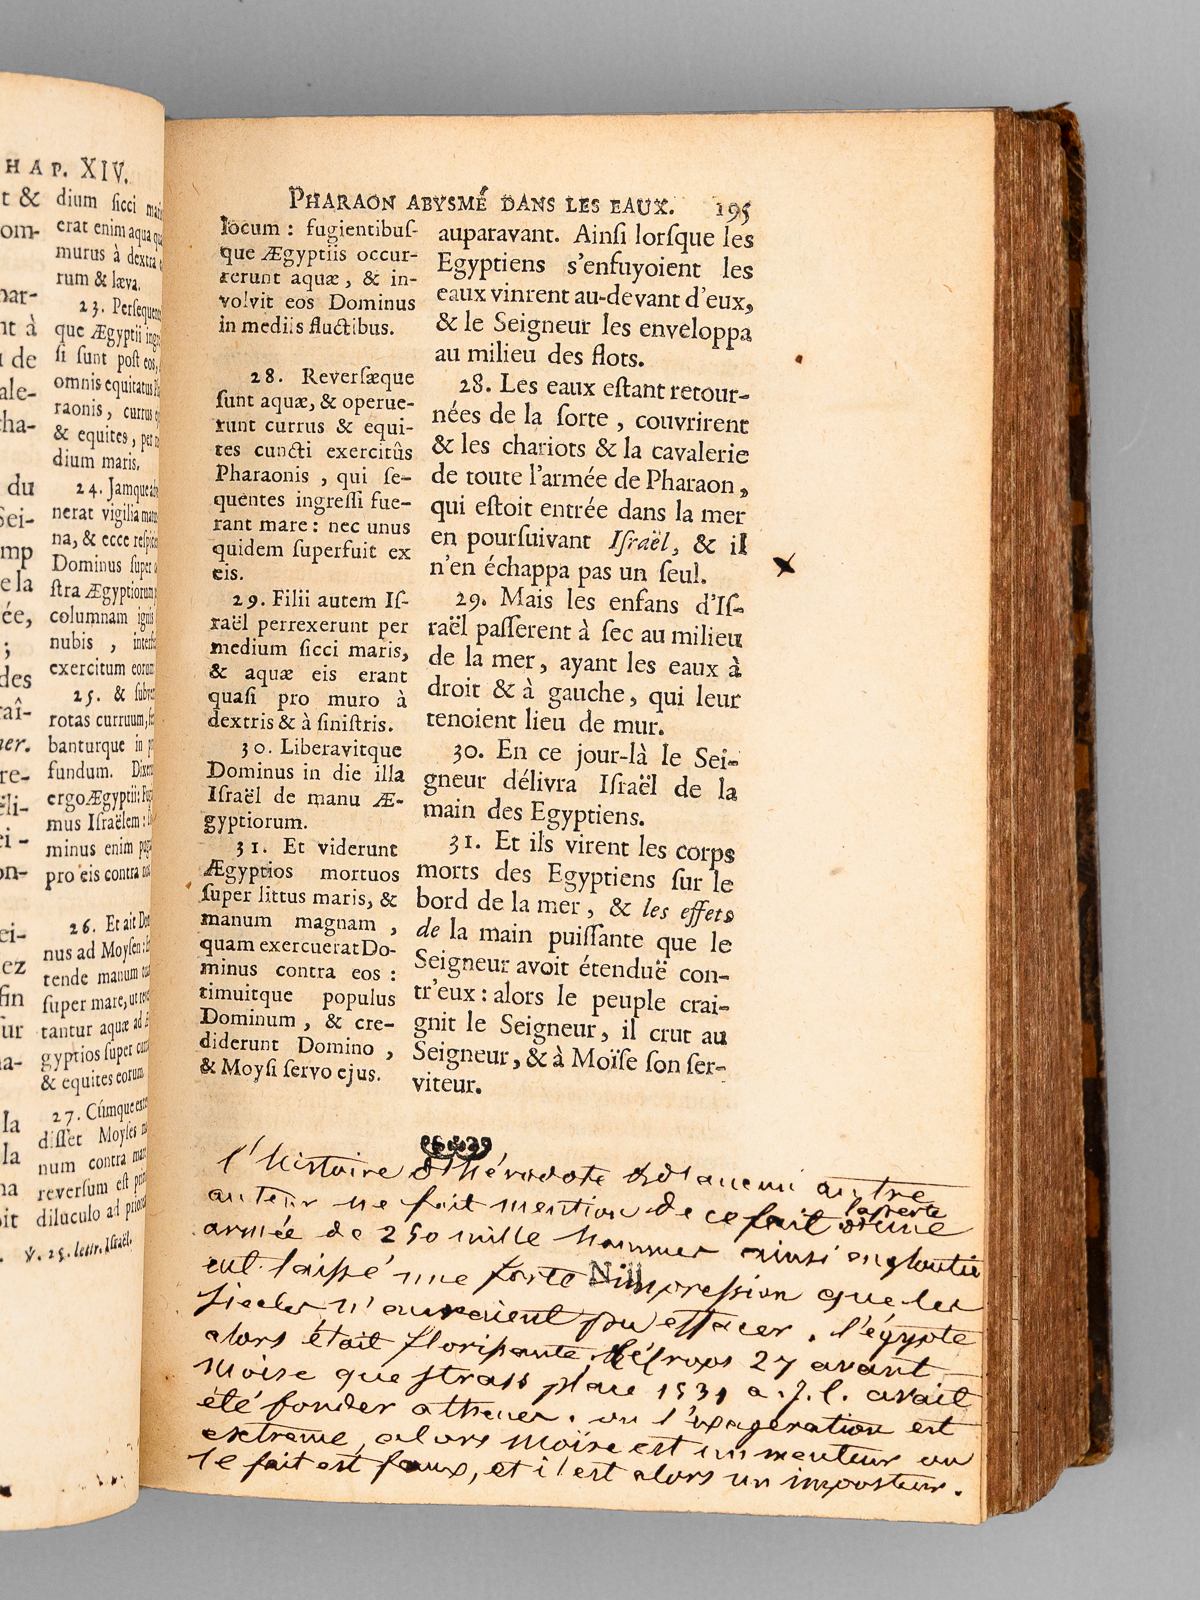 HAP. XIV.
t &
om-
par-
nt à
u de
ale-
cha-
du
Sei-
mp
e la
ée,
;
des
raî-
ner.
re-
ëli-
ei-
on-
ei-
ez
fin
sur
na-
la
la
na
oit
dium sicci maris
erat enim aqua qua
murus à dextra
rum & læva.
23. Persequente
que Ægyptii ingre
si sunt post eos,
omnis equitatus Pha
raonis, currus
& equites, per
dium maris.
24. Jamque
nerat vigilia matu
na, & ecce respici
Dominus super
stra Ægyptiorum
columnam ignis
nubis, interfe
exercitum eorum
25. & subver
rotas curruum,
banturque in
fundum. Dixer
ergo Ægyptii: Fug
mus Israëlem:
minus enim pug
pro eis contra nos
26. Et ait Do
nus ad Moysen:
tende manum
super mare, ut
tantur aquæ ad Æ
gyptios super
& equites eorum
27. Cúmque exten
disset Moyses
num contra mare
reversum est pri
diluculo ad priore
℣. 25. lettr. Israël.
PHARAON ABYSMÉ DANS LES EAUX. 195
locum : fugientibus-
que Ægyptiis occur-
rerunt aquæ, & in-
volvit eos Dominus
in mediis fluctibus.
28. Reversæque
sunt aquæ, & operue-
runt currus & equi-
tes cuncti exercitûs
Pharaonis, qui se-
quentes ingressi fue-
rant mare: nec unus
quidem superfuit ex
eis.
29. Filii autem Is-
raël perrexerunt per
medium sicci maris,
& aquæ eis erant
quasi pro muro à
dextris & à sinistris.
30. Liberavitque
Dominus in die illa
Israël de manu Æ-
gyptiorum.
31. Et viderunt
Ægyptios mortuos
super littus maris, &
manum magnam,
quam exercuerat Do-
minus contra eos:
timuitque populus
Dominum, & cre-
diderunt Domino,
& Moysi servo ejus.
auparavant. Ainsi lorsque les
Egyptiens s'enfuyoient les
eaux vinrent au-devant d'eux,
& le Seigneur les enveloppa
au milieu des flots.
28. Les eaux estant retour-
nées de la sorte, couvrirent
& les chariots & la cavalerie
de toute l'armée de Pharaon,
qui estoit entrée dans la mer
en poursuivant Israël, & il
n'en échappa pas un seul.
29. Mais les enfans d'Is-
raël passerent à sec au milieu
de la mer, ayant les eaux à
droit & à gauche, qui leur
tenoient lieu de mur.
30. En ce jour-là le Sei-
gneur délivra Israël de la
main des Egyptiens.
31. Et ils virent les corps
morts des Egyptiens sur le
bord de la mer, & les effets
de la main puissante que le
Seigneur avoit étenduë con-
tr'eux: alors le peuple crai-
gnit le Seigneur, il crut au
Seigneur, & à Moïse son ser-
viteur.
l'histoire d'hérodote et d'aucun autre
auteur ne fait mention de ce fait la perte d'une
armée de 250 mille hommes ainsi engloutie
eut laissé une forte impression que les
siecles n'auraient pu effacer. l'égypte
alors était florissante. Cécrops 27 avant
Moïse que strass place 1531 a. J. C. avait
été fonder athenes. ou l'exageration est
extreme, alors Moïse est un menteur ou
le fait est faux, et il est alors un imposteur.